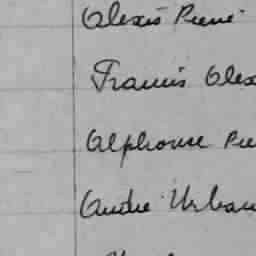 Alexis Pierre
Francis Alex
Alphonse Pie
Andre Urbain